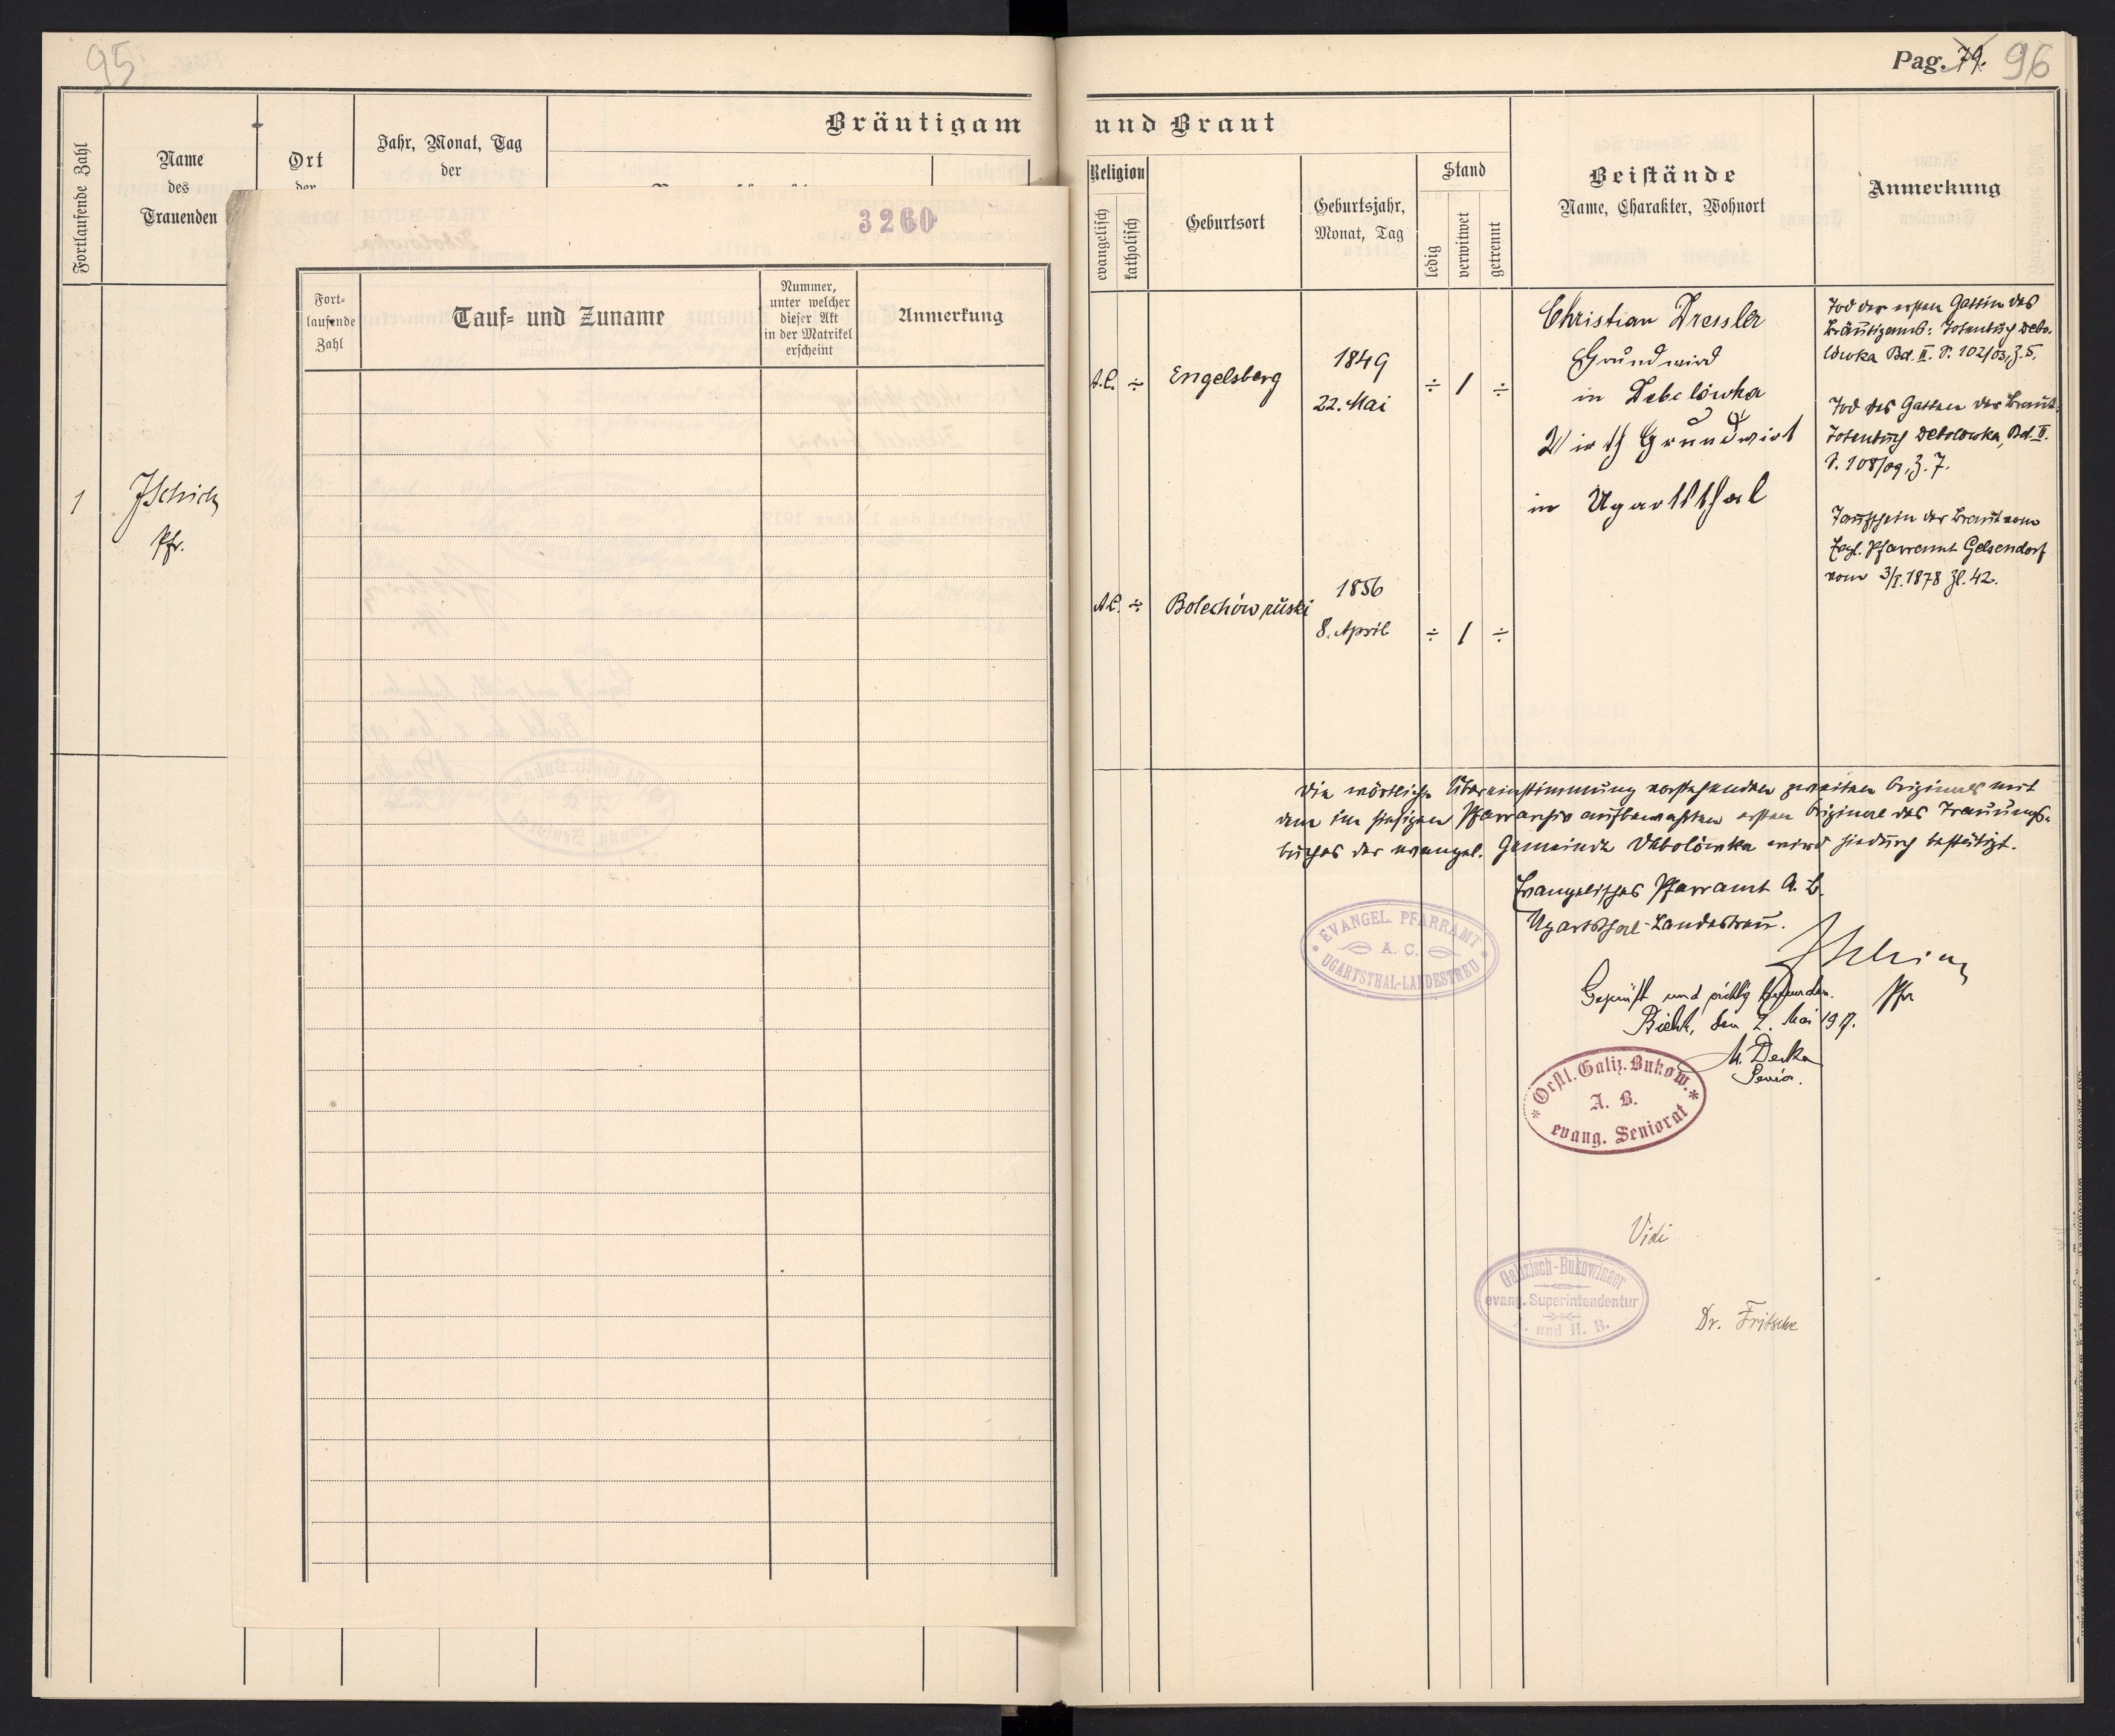 95
Fortlaufende Zahl
Name
des
Trauenden
Ort
der
Jahr, Monat, Tag
der
Bräutigam
1
Pfr.
3260
Fort-
laufende
Zahl
Tauf- und Zuname
Nummer,
unter welcher
dieser Akt
in der Matrikel
erscheint
Anmerkung
Pag. 79. 96
und Braut
Religion
evangelisch
katholisch
Geburtsort
Geburtsjahr,
Monat, Tag
Stand
ledig
verwitwet
getrennt
Beistände
Name, Charakter, Wohnort
Anmerkung
A.C. ÷ Engelsberg
1849
22. Mai
÷ 1 ÷
Christian Dressler
Grundwird
in Debelówka
Grundwirt
in Ugartsthal
Tod der ersten Gattin des
Bräutigams: Totenbuch Debo-
lówka Bd. II. P. 102/03, Z. 5.
Tod des Gatten der Braut:
Totenbuch Debolowka, Bd. II.
P. 108/09, Z. 7.
Taufschein der Braut vom
Evgl. Pfarramt Gelsendorf
vom 3/I. 1878 Zl. 42.
A.C. ÷ Bolechów ruski
1856
8. April
÷ 1 ÷
Die wörtliche Übereinstimmung vorstehenden zweiten Originals mit
dem im hiesigen Pfarrarchiv aufbewahrten ersten Original des Trauungs-
buches der evangel. Gemeinde Debolówka wird hiedurch bestätigt.
Evangelisches Pfarramt A. B.
Ugartsthal-Landestreu.
EVANGEL. PFARRAMT
A. C.
UGARTSTHAL-LANDESTREU
Pfr
Geprüft und richtig befunden.
den 2. Mai 1917.
Senior.
Oestl. Galiz. Bukow.
A. B.
evang. Seniorat
Vidi
Galizisch-Bukowinaer
evang. Superintendentur
A. und H. B.
Dr. Fritsche